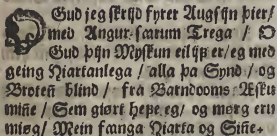 O Gud jeg skrijd fyrer Augsijn þier/
med Angur-særum Trega / O
Gud þijn Myskun eilijf er/ eg med
geing Hiartanlega / alla þa Synd / og
Broteñ blind / frá Barndooms Æsku
miñe / Sem giørt hefe eg/ og mørg eru
miøg/ Mein fanga Hiarta og Siñe.